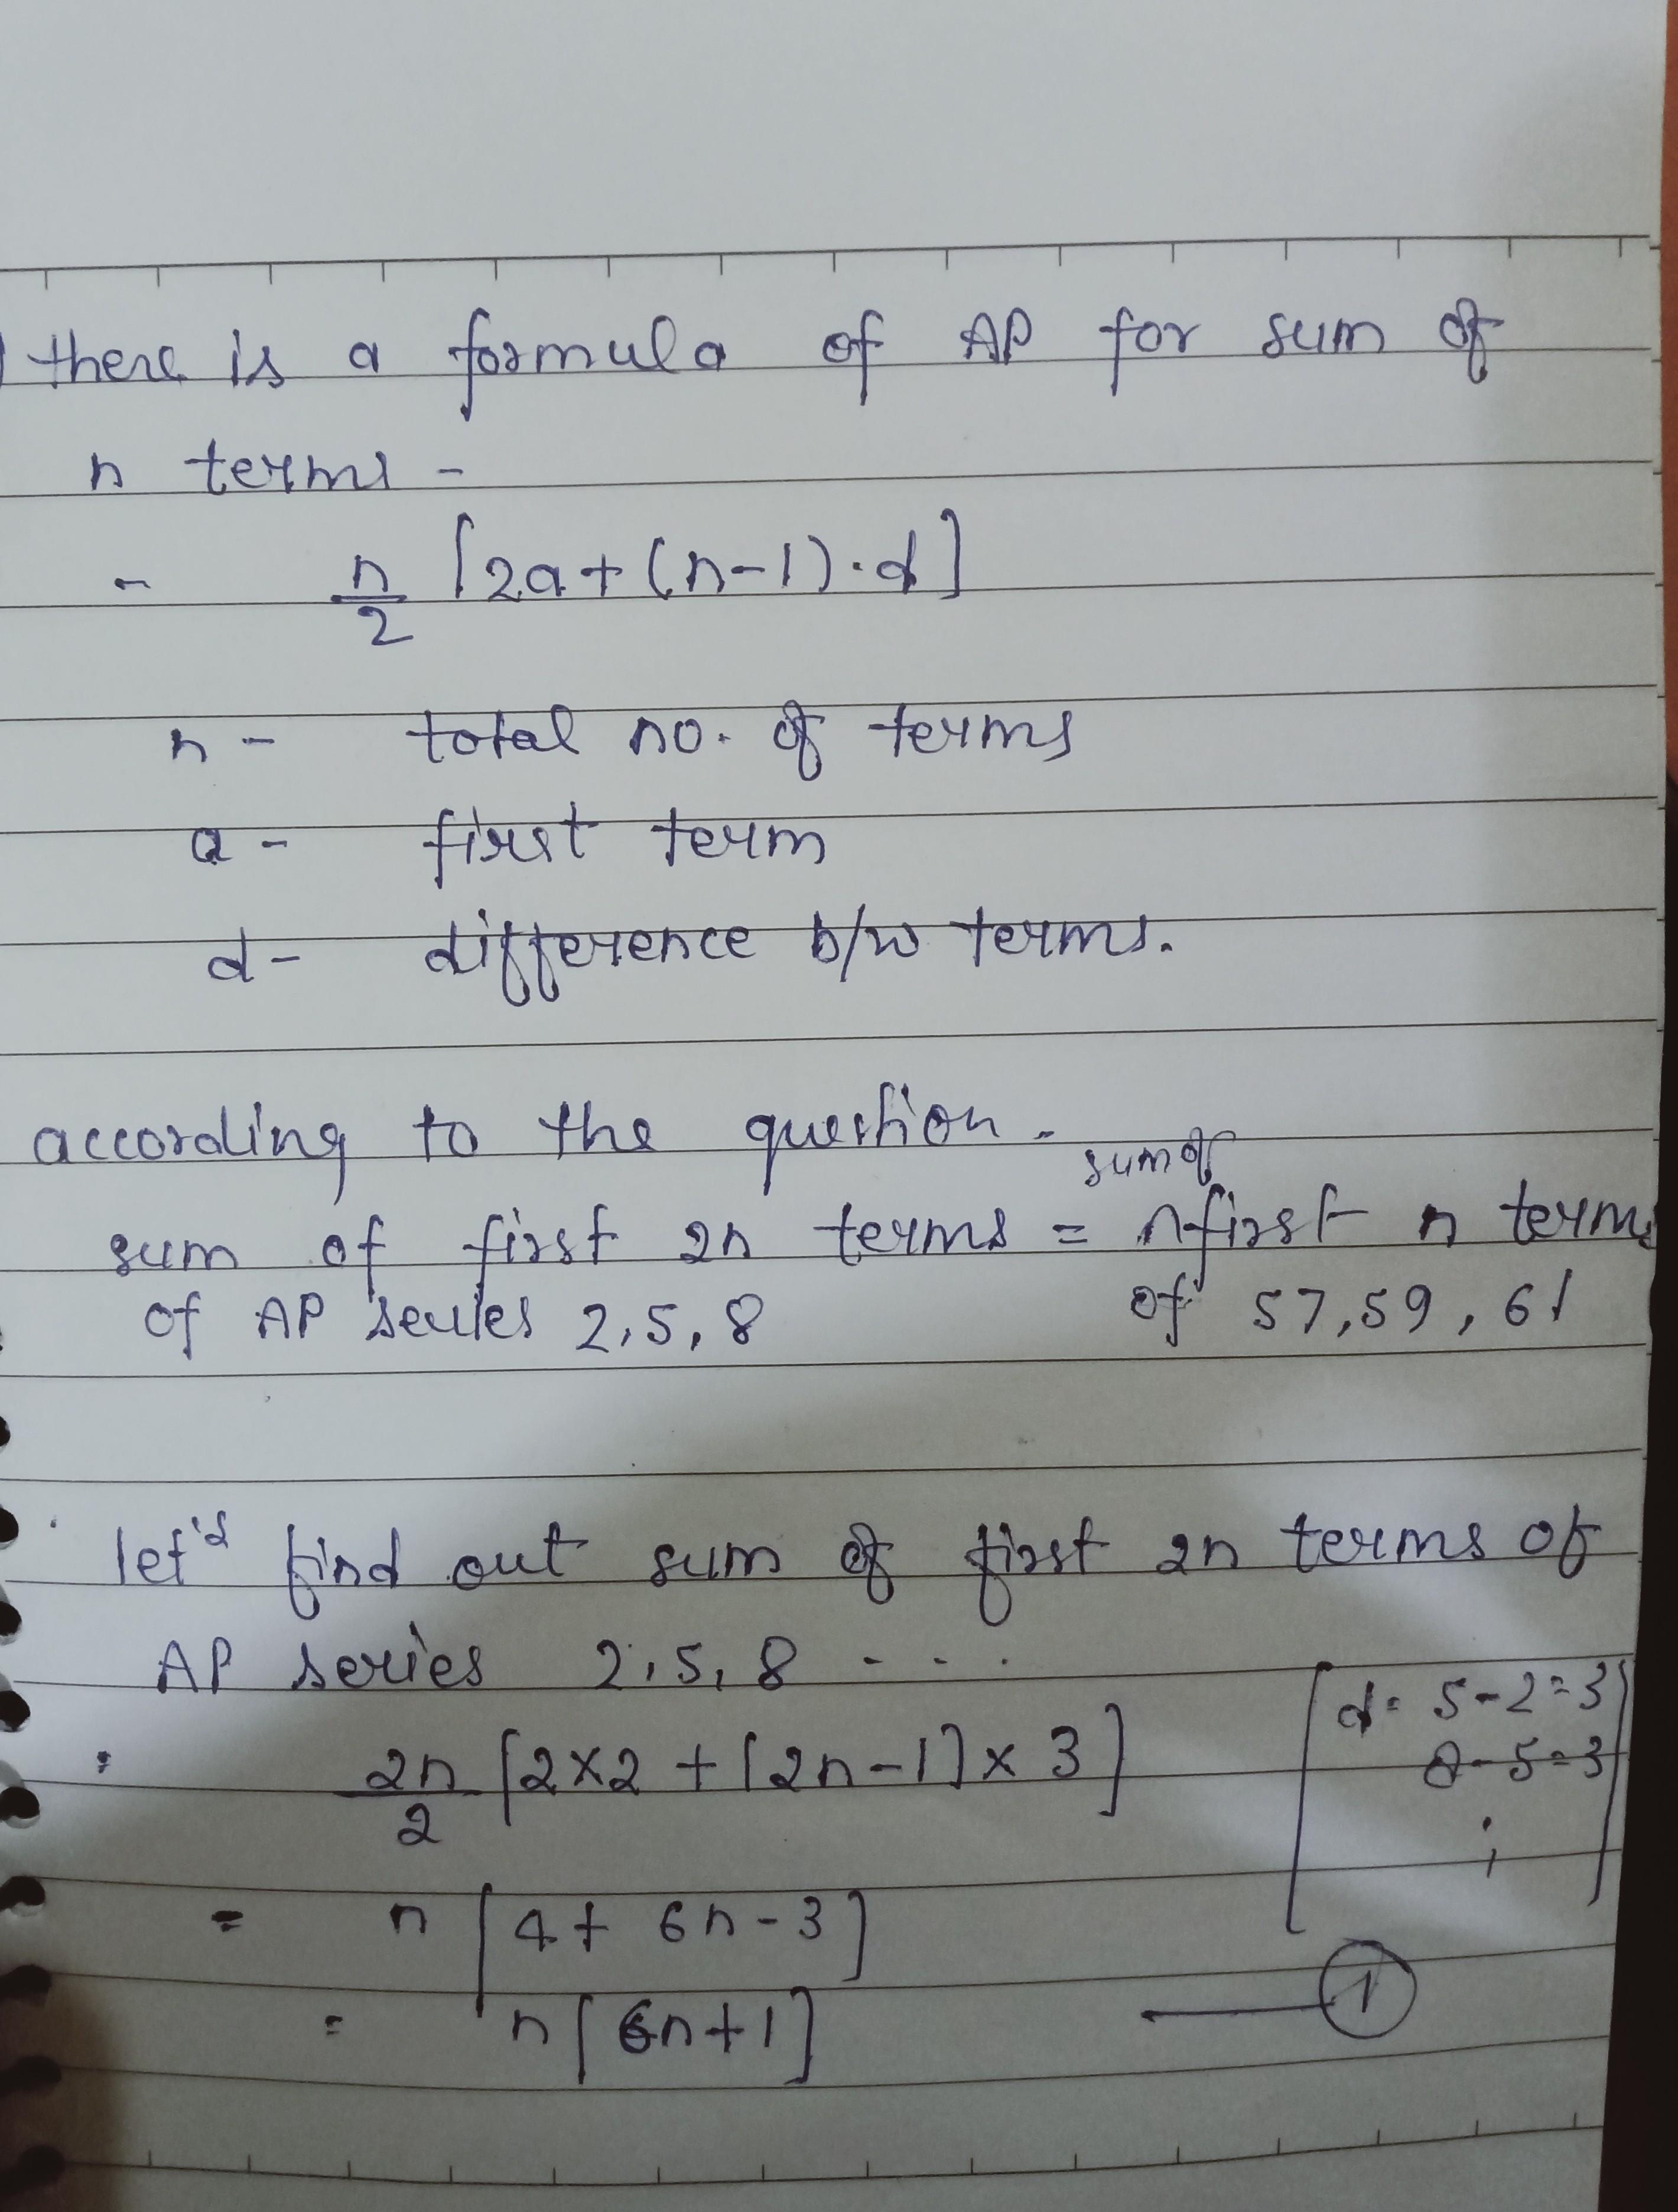 there is a formula of AP for sum of
n terms -
- n/2 [2a+(n-1).d]
n - total no. of terms
a - first term
d - difference b/w terms.
according to the question -
sum of
sum of first 2n terms = first n terms
of AP series 2,5,8 of 57,59,61
let's find out sum of first 2n terms of
AP series 2,5,8 ----
d= 5-2=3
: 2n/2 [2×2 + [2n-1]×3]
8-5=3
= n [4+ 6n-3]
= n[6n+1] — 1